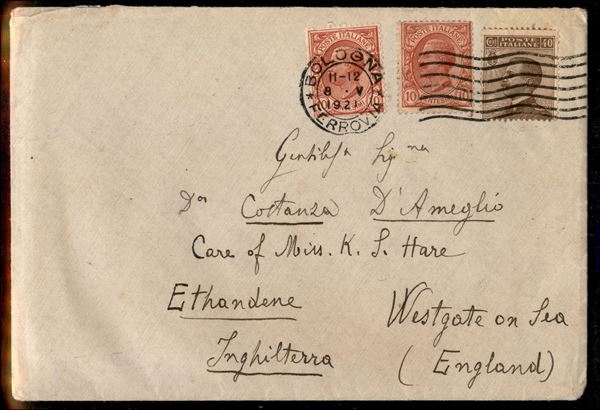 POSTE ITALIANE
POSTE ITALIANE
10
10
POSTE ITALIANE
40
BOLOGNA
11-12
8 . V
1921
FERROVIA
Gentilesª Signa
Dna Costanza D'Ameglio
Care of Miss. K. S. Hare
Ethandene Westgate on Sea
Inghilterra (England)